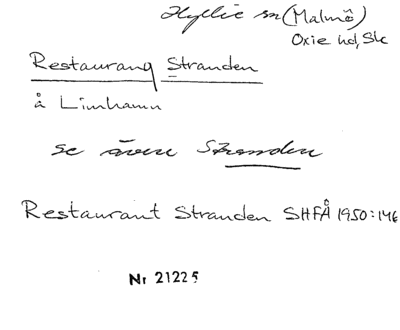 Hyllie sn (Malmö)
Oxie hd, Sk
Restaurang Stranden
å Limhamn
se även Stranden
Restaurant Stranden SHFÅ 1950:146
Nr 21225